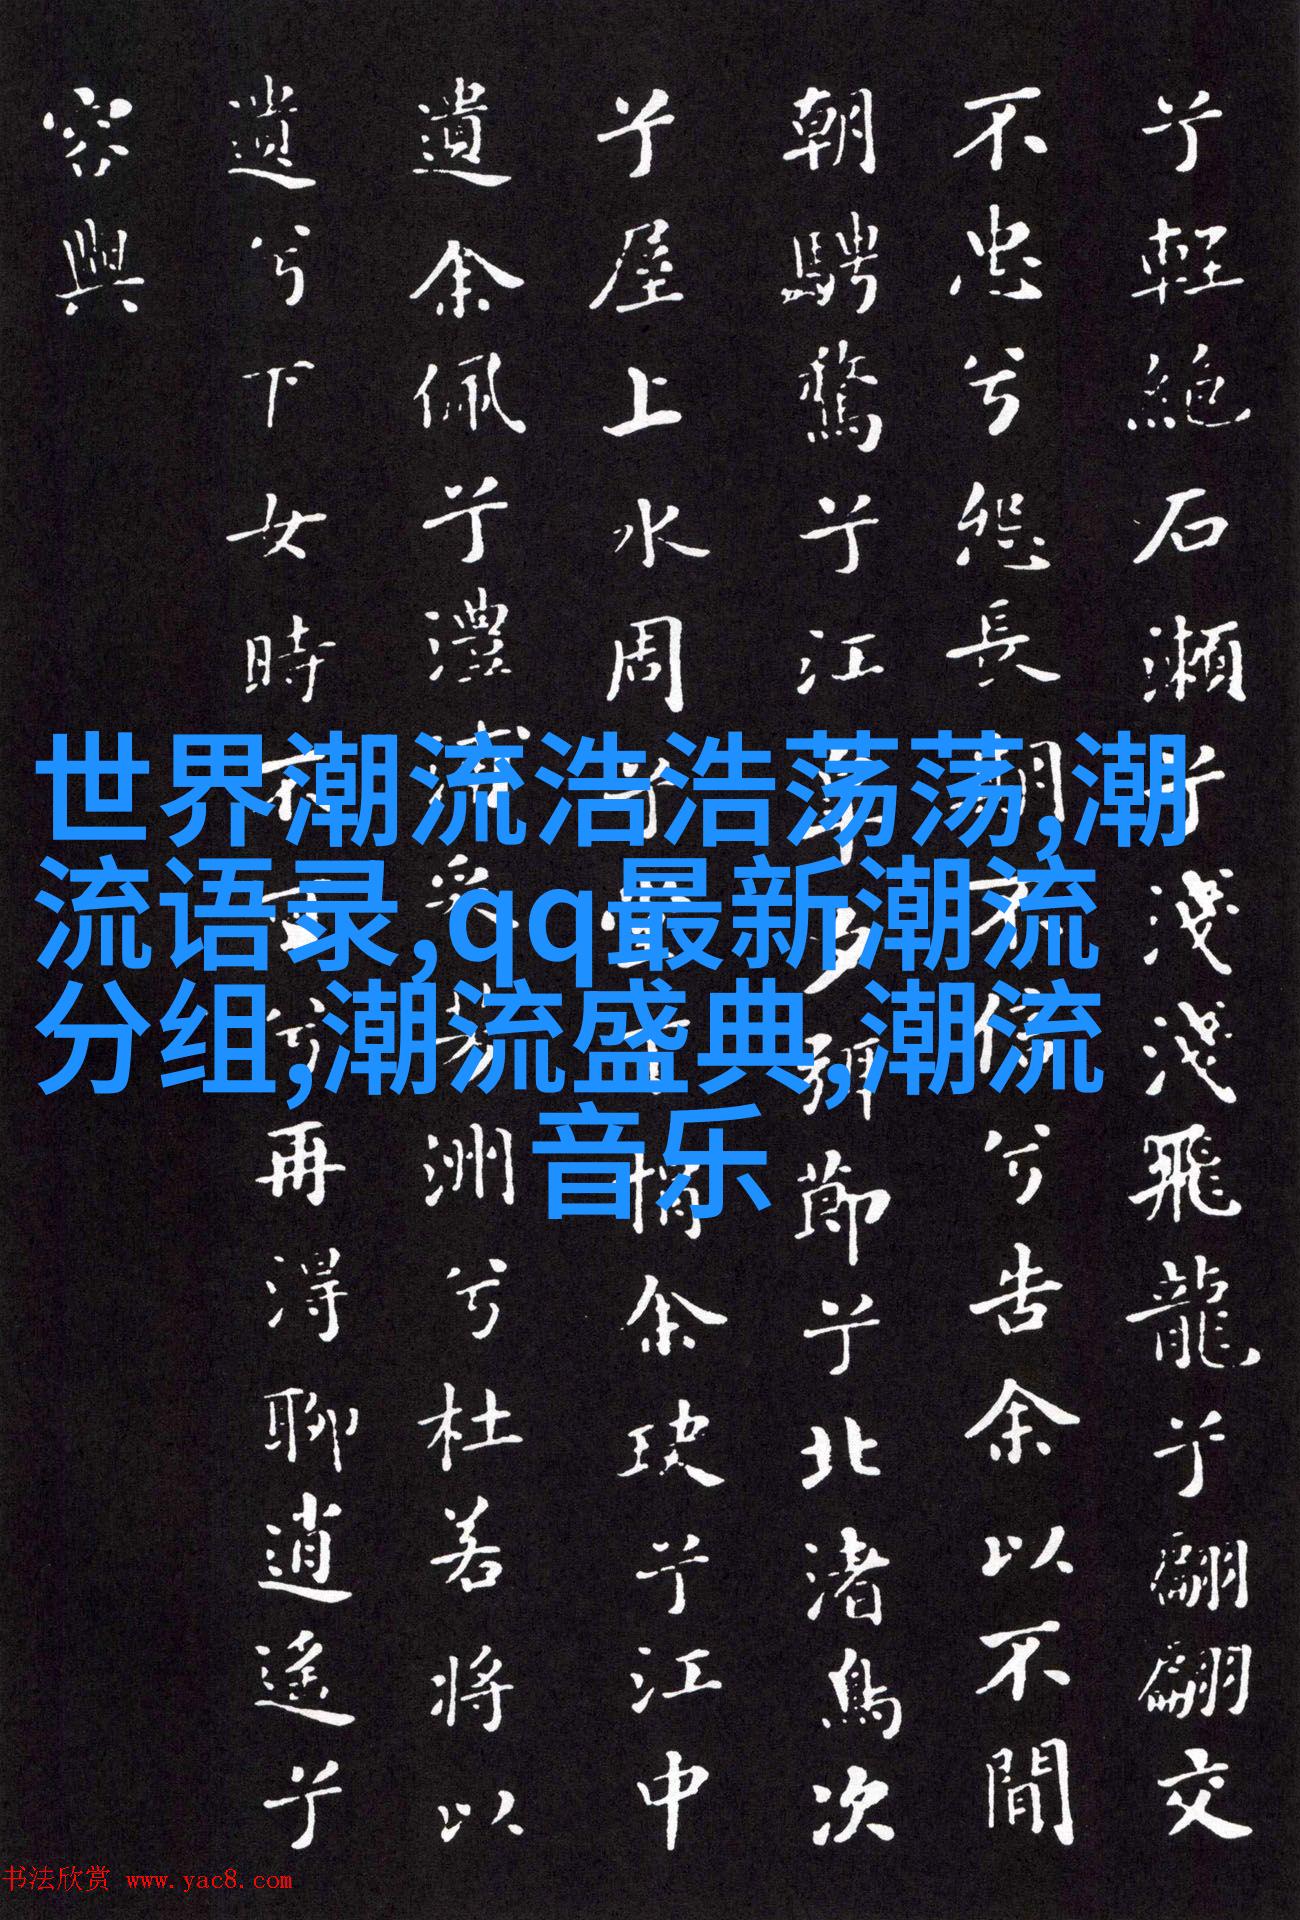 兮輕絕石瀨兮淺淺飛龍兮翩翩交
不忠兮怨長期不信兮告余以不閒
朝騁騖兮江皋夕弭節兮北渚鳥次
兮屋上水周兮堂下捐余玦兮江中
遺余佩兮澧浦采芳洲兮杜若將以
遺兮下女時不可兮再得聊逍遙兮
容與
世界潮流浩浩荡荡,潮
流语录,qq最新潮流
分组,潮流盛典,潮流
音乐
书法欣赏 www.yac8.com